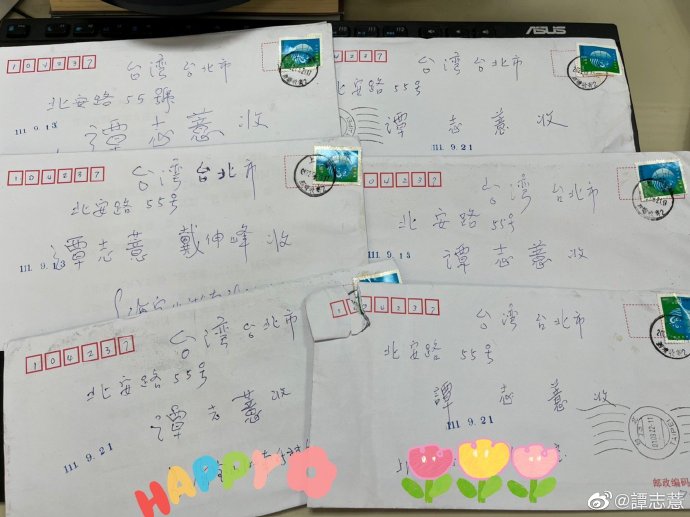 ASUS
104237
台湾 台北市
北安路 55號
111.9.13
譚志薏 收
台湾 台北市
北安路 55号
譚 志 薏 收
111.9.21
104237
台湾 台北市
北安路 55号
譚志薏 戴伸峰 收
111.9.13
04237
台湾 台北市
北安路 55号
譚 志 薏 收
111.9.13
104237
台湾 台北市
北安路 55号
譚 志 薏 收
111.9.21
HAPPY
104237
台湾 台北市
北安路 55号
譚 志 薏 收
111.9.21
TAIPEI
邮政编码
@譚志薏